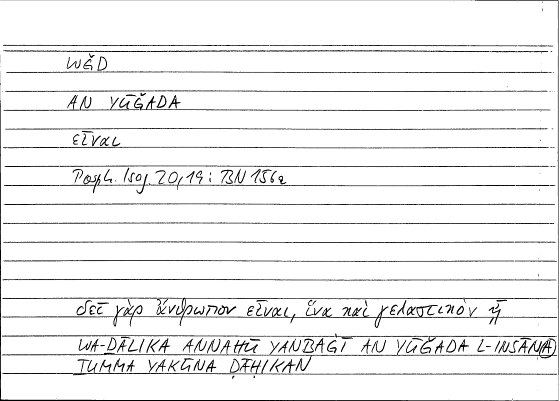 WǦD
AN YŪǦADA
εἶναι
Porph. Isag. 20,19: BN 156a
δεῖ γὰρ ἄνθρωπον εἶναι, ἵνα καὶ γελαστικὸν ᾖ
WA-ḎĀLIKA ANNAHŪ YANBAĠĪ AN YŪǦADA L-INSĀNA
ṮUMMA YAKŪNA ḌĀḤIKAN